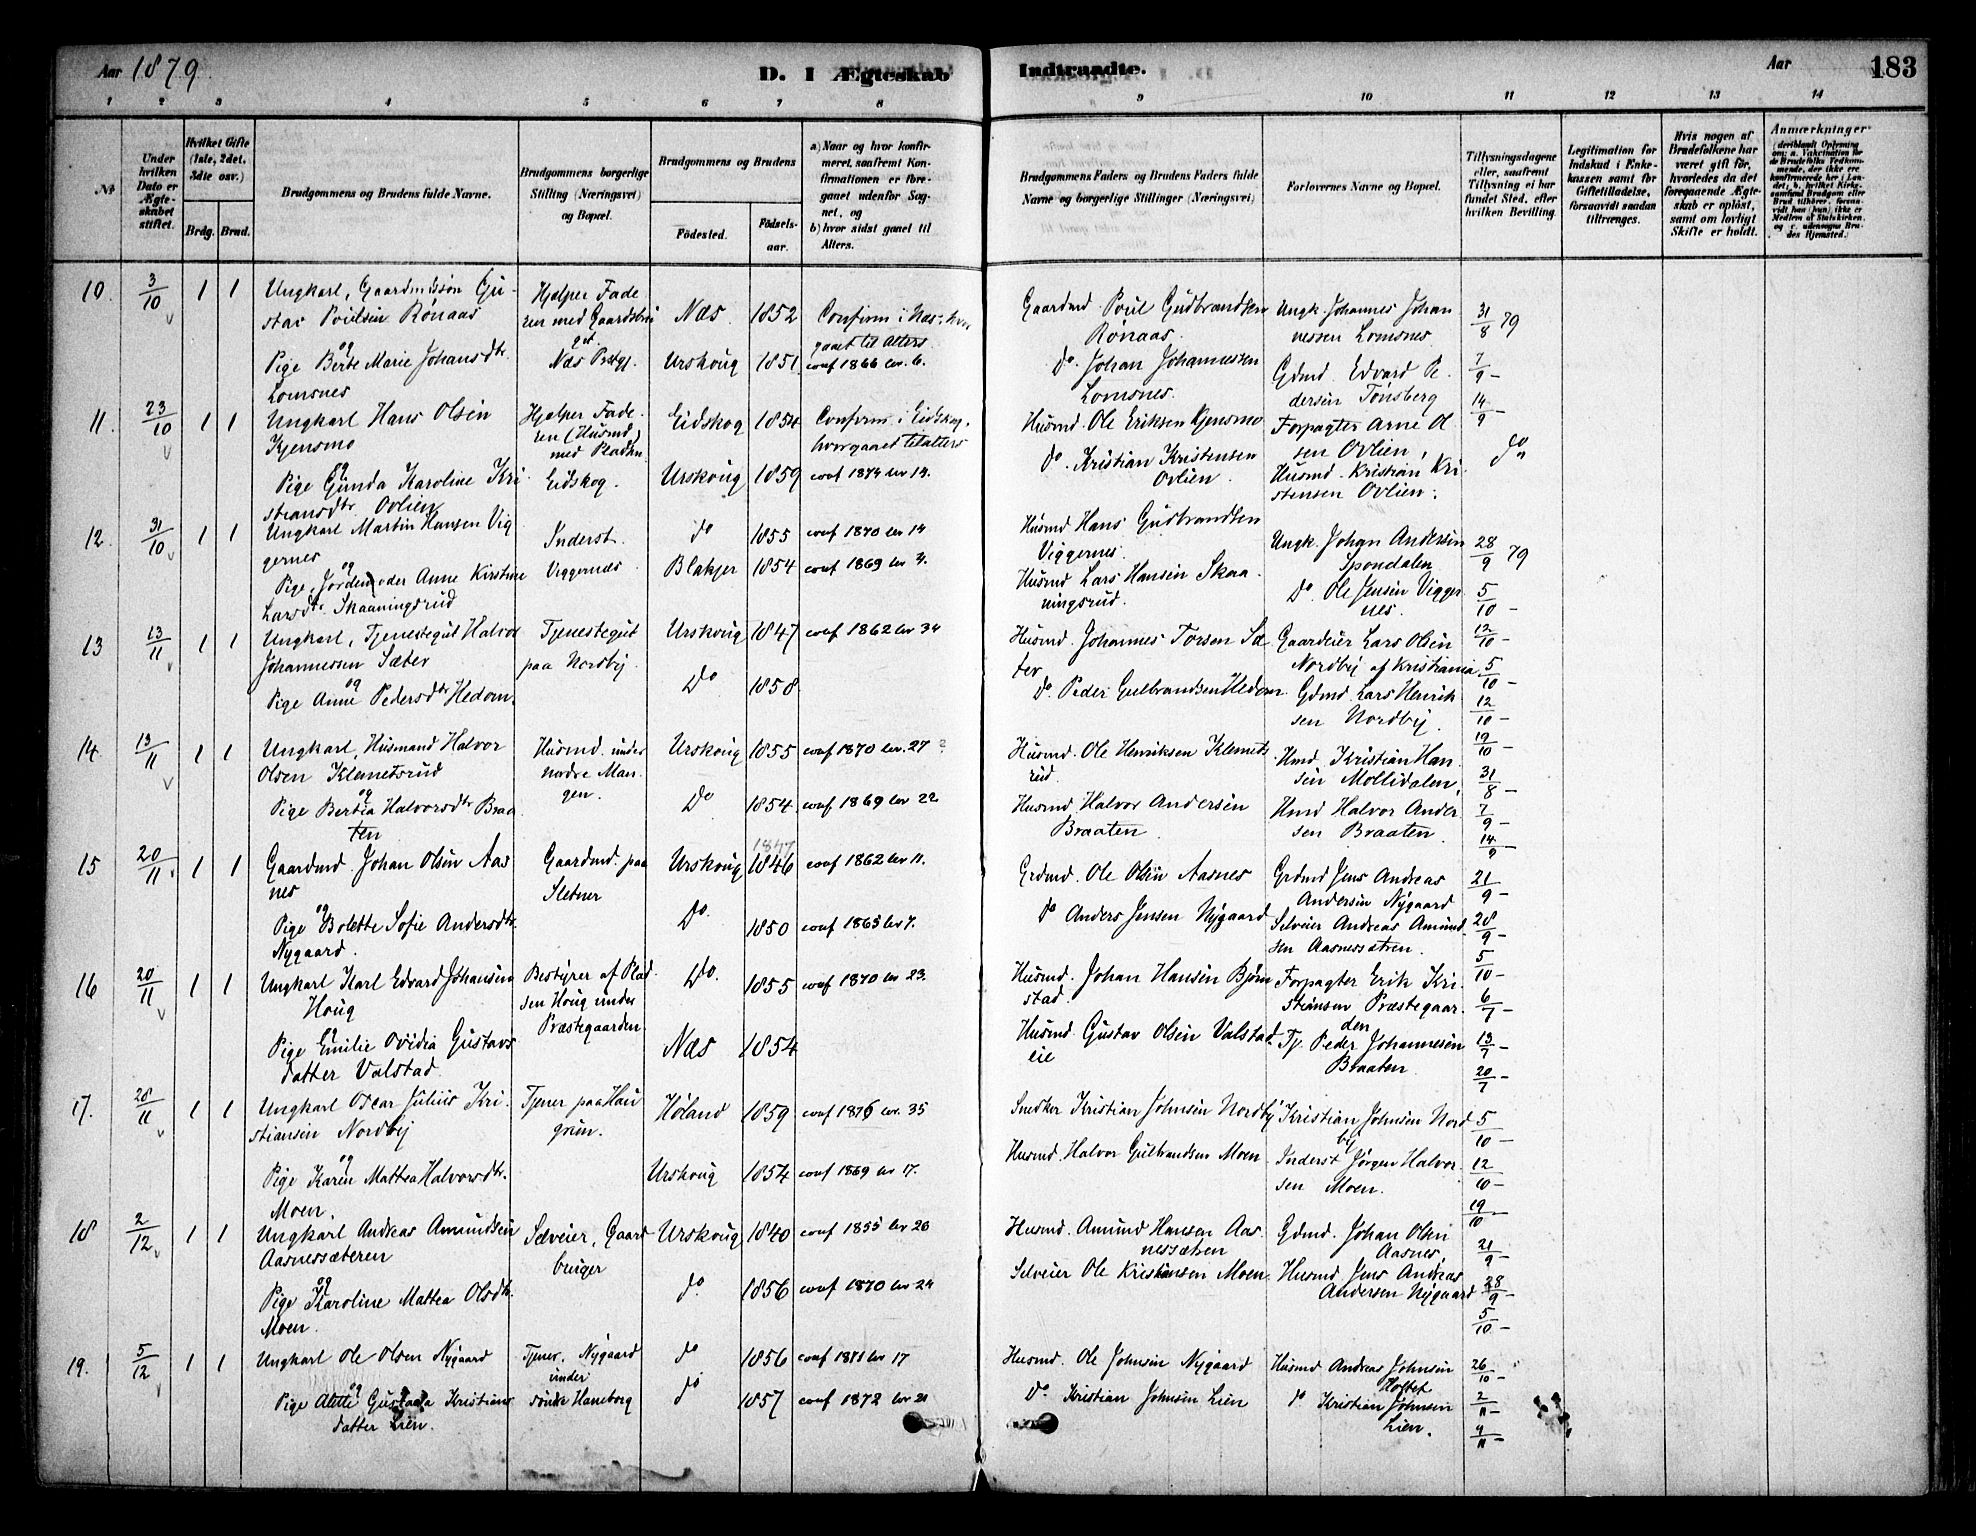 Aar 1879.
D. I Ægteskab
Indtraadte.
Aar
183
1 2 3 4 5 6 7 8 9 10 11 12 13 14
No
Under hvilken Dato er Ægteskabet stiftet.
Hvilket Gifte (1ste, 2det, 3die osv.)
Brdg. Brud.
Brudgommens og Brudens fulde Navne.
Brudgommens borgerlige Stilling (Næringsvei) og Bopæl.
Brudgommens og Brudens
Fødested. Fødselsaar.
a) Naar og hvor konfirmeret, saafremt Konfirmationen er foregaaet udenfor Sognet, og
b) hvor sidst gaaet til Alters.
Brudgommens Faders og Brudens Faders fulde Navne og borgerlige Stillinger (Næringsvei)
Forlovernes Navne og Bopæl.
Tillysningsdagene eller, saafremt Tillysning ei har fundet Sted, efter hvilken Bevilling.
Legitimation for Indskud i Enkekassen samt for Giftetilladelse, forsaavidt saadan tiltrænges.
Hvis nogen af Brudefolkene har været gift før, hvorledes da det foregaaende Ægteskab er opløst, samt om lovligt Skifte er holdt.
Anmærkninger
10. 3/10 1 1 Ungkarl, Gaardmdssøn Gustav Poulsen Rønaas
Hjælper Faderen med Gaardsbruget. Næs Prstgj.
Næs. 1852 Confirm i Næs, hvor gaaet til Alters
Gaardmd. Poul Gudbrandsen Rønaas.
Ungk. Johannes Johannessen Lomsnes
31/8 79
og
Pige Berte Marie Johansdtr. Lomsnes
Urskoug 1851. conf 1866 lv. 6.
do. Johan Johannessen Lomsnes.
Gdmd. Edvard Pedersen Tønsberg
7/9 –
14/9 –
11. 23/10 1 1 Ungkarl Hans Olsen Kjensmo
Hjælper Faderen (Husmd, med Pladsen) Eidskog.
Eidskog 1854 Confirm. i Eidskog, hvor gaaet til Alters
Husmd. Ole Eriksen Kjensmo
Forpagter Arne Olsen Ovlien,
do
og
Pige Gunda Karoline Kristiansdtr. Ovlien
Urskoug 1859 conf 1874 lv 13.
do. Kristian Kristensen Ovlien.
Husmd. Kristian Kristensen Ovlien.
12. 31/10 1 1 Ungkarl Martin Hansen Viggernes
Inderst. Viggernæs
do 1855 conf 1870 lv 14
Husmd Hans Gudbrandsen Viggernes.
Ungk. Johan Andersen Spondalen
28/9 79
og
Pige, Jorden oder Anne Kirstine Larsdtr. Skaaningsrud
Blakjer 1854 conf 1869 lv 3.
Husmd Lars Hansen Skaaningsrud.
Do. Ole Jensen Viggernes.
5/10 –
12/10 –
13 13/11 1 1 Ungkarl, Tjenestegut Halvor Johannessen Sæter
Tjenestegut paa Nordby.
Urskoug 1847 conf 1862 lv 34
Husmd. Johannes Torsen Sæter
Gaardeier Lars Olsen Nordby af Kristiania
5/10 –
og
Pige Anne Pedersdtr Hedom.
Do 1858.
do Peder Gulbrandsen Hedom.
Gdmd Lars Henriksen Nordby.
12/10 –
19/10 –
14. 13/11 1 1 Ungkarl, Husmand Halvor Olsen Klemetsrud
Husmd. under nordre Mangen.
Urskoug 1855 conf 1870 lv. 27 ?
Husmd. Ole Henriksen Klemetsrud.
Hmd. Kristian Hansen Mollidalen,
31/8 –
og
Pige Bertia Halvorsdtr Braaten
Do 1854. conf 1869 lv 22
Husmd Halvor Andersen Braaten.
Hmd Halvor Andersen Braaten.
7/9 –
14/9 –
15 20/11 1 1 Gaardmd. Johan Olsen Aasnes
Gaardmd. paa Sletner
Urskoug 1847 1846 conf 1862 lv 11.
Grdmd. Ole Olsen Aasnes
Grdmd Jens Andreas Andersen Nygaard
21/9 –
og
Pige Bolette Sofie Andersdtr. Nygaard.
Do. 1850 conf 1865 lv 7.
do Anders Jensen Nygaard
Selveier Andreas Amundsen Aasnessætren.
28/9 –
5/10 –
16 20/11 1 1 Ungkarl Karl Edvard Johansen Houg
Bestyrer af Pladsen Houg under Præstegaarden.
Do. 1855 conf 1870 lv 23.
Husmd. Johan Hansen Bjørnstad.
Forpagter Erik Kristiansen Præstegaarden
6/7 –
og
Pige Emilie Ovidia Gustavsdatter Valstad.
Næs 1854
Husmd. Gustav Olsen Valstadeie
Tj. Peder Johannesen Braaten.
13/7 –
20/7 –
17. 28/11 1 1 Ungkarl Oscar Julius Kristiansen Nordby
Tjener paa Haugrim.
Høland 1859 conf 1876 lv. 35
Snedker Kristian Johnsen Nordby
Kristian Johnsen Nordby
5/10 –
og
Pige Karen Mattea Halvorsdtr. Moen.
Urskoug 1854 conf 1869 lv 17.
Husmd. Halvor Gulbrandsen Moen.
Inderst Jørgen Halvorsen Moen.
12/10 –
19/10 –
18 2/12 1 1 Ungkarl Andreas Amundsen Aasnessæteren
Sælveier, Gaardbruger
Urskoug 1840 conf 1855 lv 26
Husmd. Amund Hansen Aasnessætren
Gdmd. Johan Olsen Aasnes,
21/9 –
og
Pige Karoline Mattea Olsdtr. Moen.
do. 1856 conf 1870 lv 24
Selveier Ole Kristiansen Moen.
Husmd. Jens Andreas Andersen Nygaard
28/9 –
5/10 –
19. 5/12 1 1 Ungkarl Ole Olsen Nygaard
Tjener. Nygaard under søndre Haneborg
do 1856 conf 1871 lv 17
Husmd. Ole Johnsen Nygaard
Husmd Andreas Johnsen Holtet
26/10 –
og
Pige Alette Gustava Kristiansdatter Lien.
do 1857 conf 1872 lv 21
Do. Kristian Johnsen Lien
do Kristian Johnsen Lien.
2/11 –
9/11 –